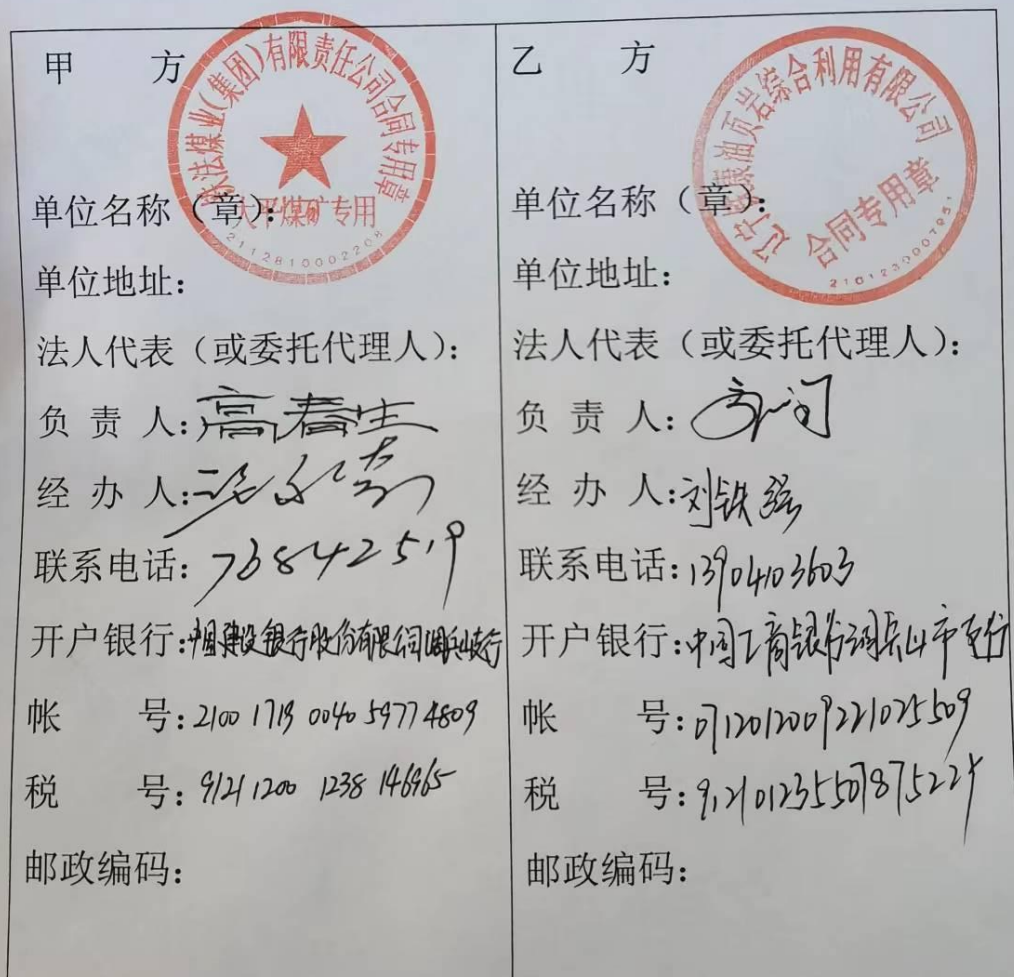 甲 方
铁法煤业(集团)有限责任公司合同专用章
大平煤矿专用
2112810002208
单位名称（章）：
单位地址：
法人代表（或委托代理人）：
负 责 人：高春生
经 办 人：
联系电话：76842519
开户银行：中国建设银行股份有限公司调兵山支行
帐 号：2100 1713 0040 5977 4809
税 号：9121 1200 1238 146965
邮政编码：
乙 方
油页岩综合利用有限公司
合同专用章
2101230007951
单位名称（章）：
单位地址：
法人代表（或委托代理人）：
负 责 人：
经 办 人：刘铁强
联系电话：13904103603
开户银行：中国工商银行调兵山市支行
帐 号：0712012009221025509
税 号：
邮政编码：